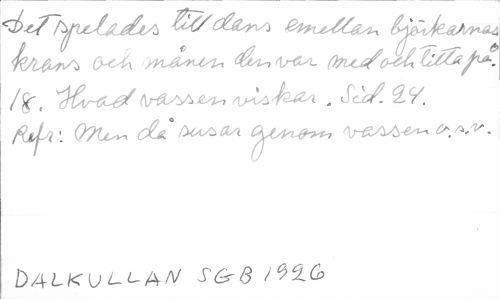 Det spelades till dans emellan björkarnas
krans och månen den var med och titta på.
18. Hvad vassen viskar. Sid. 24.
Refr: Men då susar genom vassen o.s.v.
DALKULLAN SGB 1926